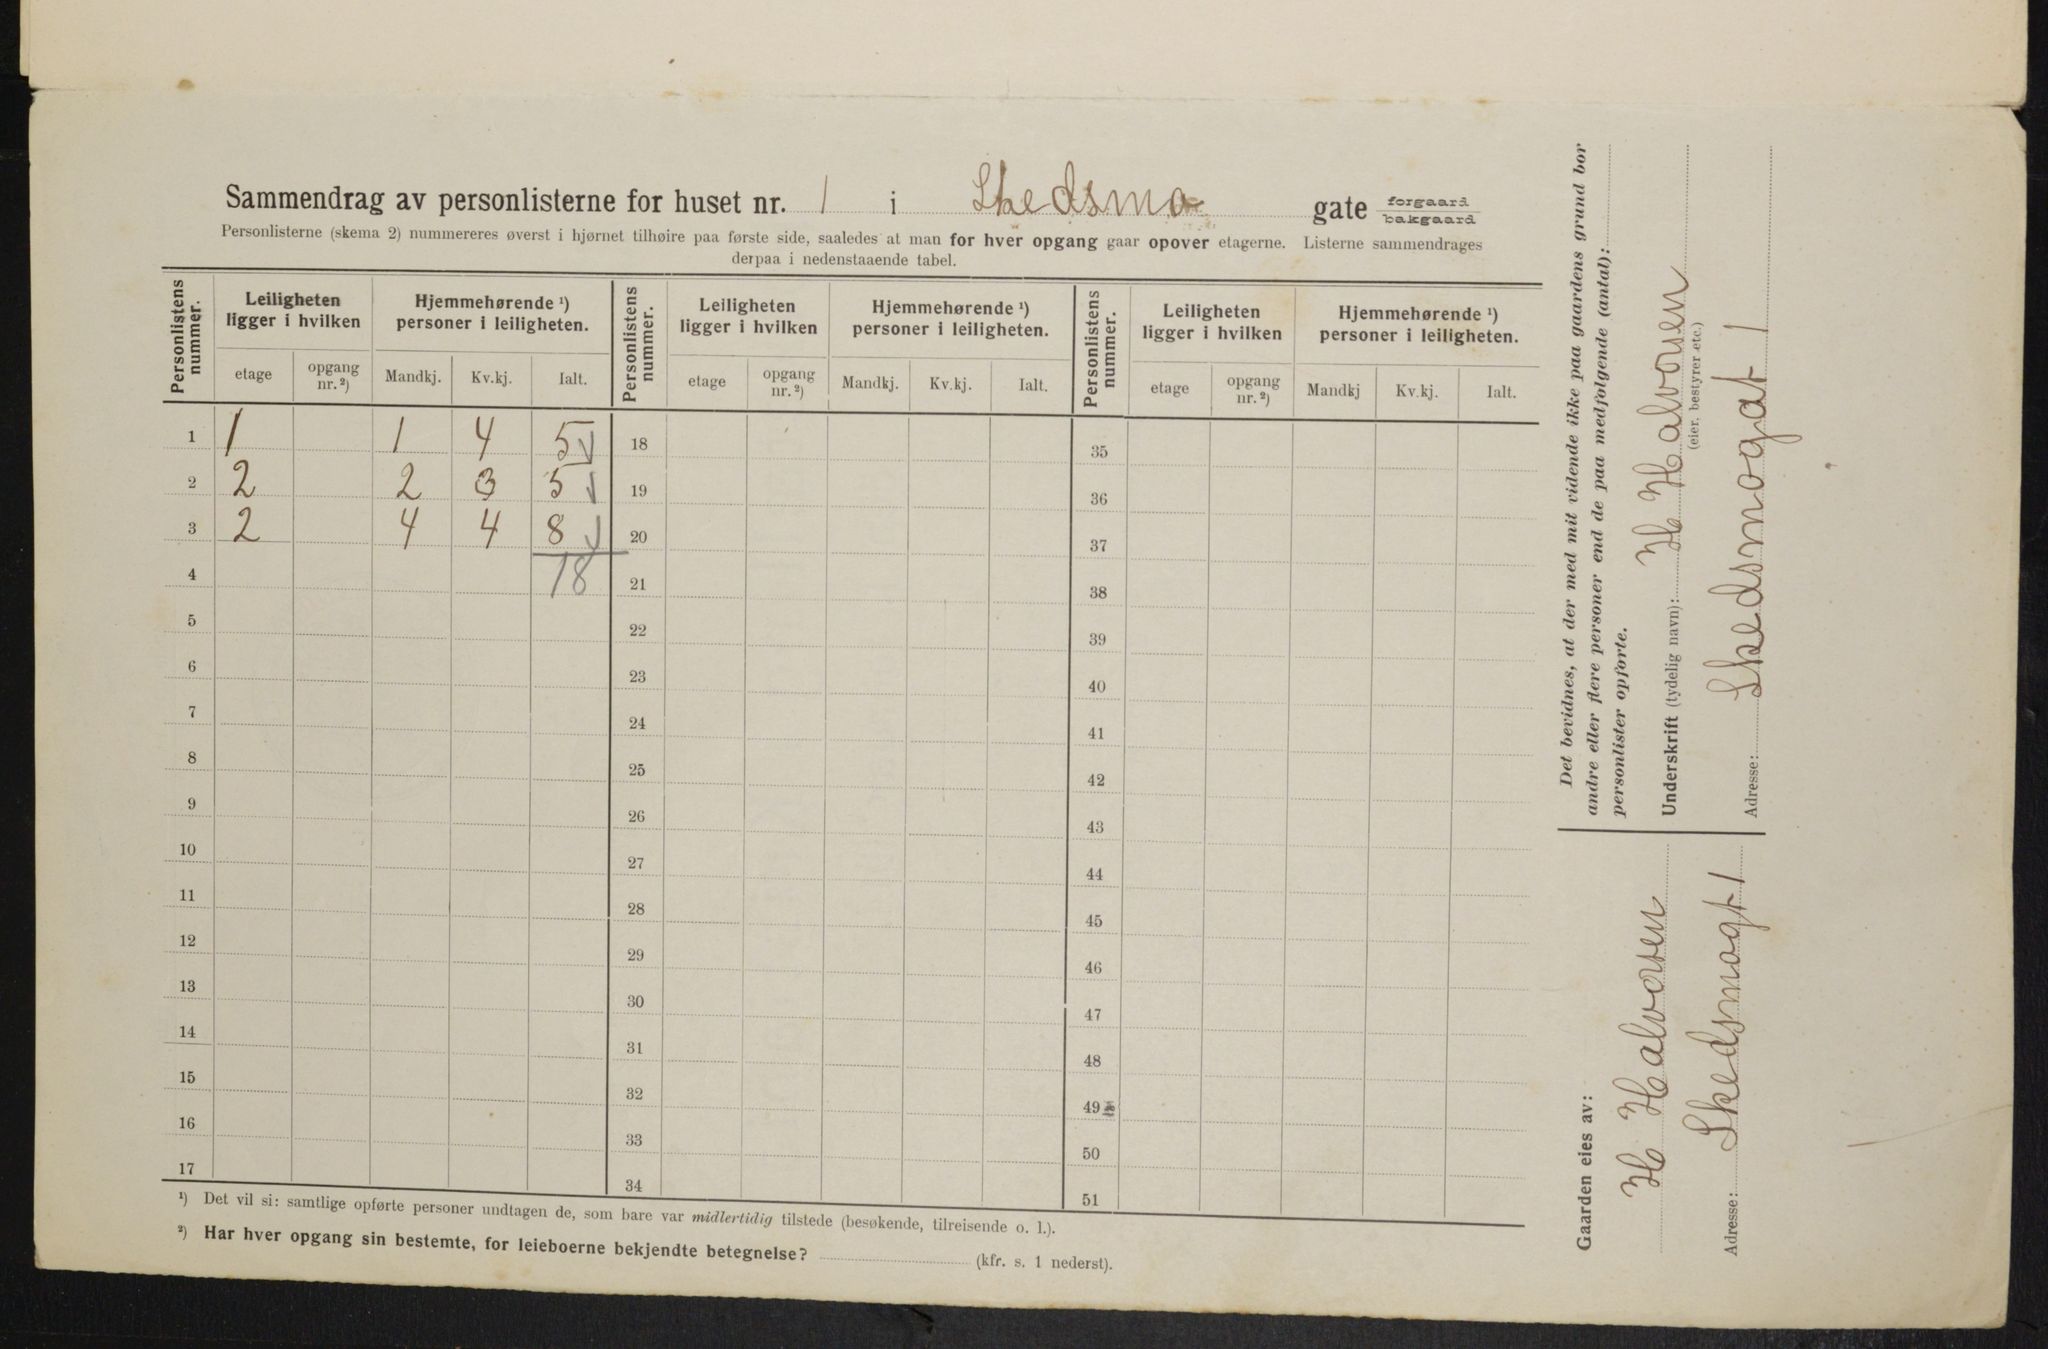 Sammendrag av personlisterne for huset nr. 1 i Skedsmo gate forgaard bakgaard
Personlisterne (skema 2) nummereres øverst i hjørnet tilhøire paa første side, saaledes at man for hver opgang gaar opover etagerne. Listerne sammendrages
derpaa i nedenstaaende tabel.
Personlistens nummer. Leiligheten ligger i hvilken Hjemmehørende ¹) personer i leiligheten. Personlistens nummer. Leiligheten ligger i hvilken Hjemmehørende ¹) personer i leiligheten. Personlistens nummer. Leiligheten ligger i hvilken Hjemmehørende ¹) personer i leiligheten.
etage opgang nr. ²) Mandkj. Kv.kj. Ialt. etage opgang nr. ²) Mandkj. Kv.kj. Ialt. etage opgang nr. ²) Mandkj Kv.kj. Ialt.
1 1 1 4 5 18 35
2 2 2 3 5 19 36
3 2 4 4 8 20 37
4 18 21 38
5 22 39
6 23 40
7 24 41
8 25 42
9 26 43
10 27 44
11 28 45
12 29 46
13 30 47
14 31 48
15 32 49
16 33 50
17 34 51
¹) Det vil si: samtlige opførte personer undtagen de, som bare var midlertidig tilstede (besøkende, tilreisende o. l.).
²) Har hver opgang sin bestemte, for leieboerne bekjendte betegnelse? (kfr. s. 1 nederst).
Det bevidnes, at der med mit vidende ikke paa gaardens grund bor
andre eller flere personer end de paa medfølgende (antal):
personlister opførte.
Underskrift (tydelig navn): H Halvorsen
(eier, bestyrer etc.)
Adresse: Skedsmogat 1
Gaarden eies av:
H Halvorsen
Adresse: Skedsmogt 1